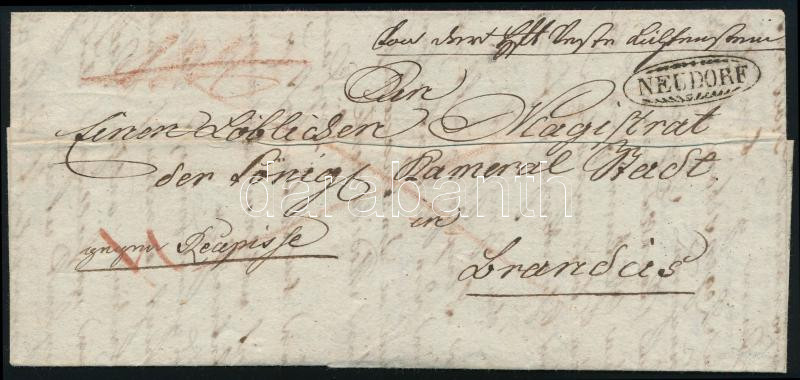 Von der Hft Veste Lichtenstein
NEUDORF
An
Einen Löblichen Magistrat
der königl Kameral Stadt
in
gegen Recepisse
Brandeis
darabanth